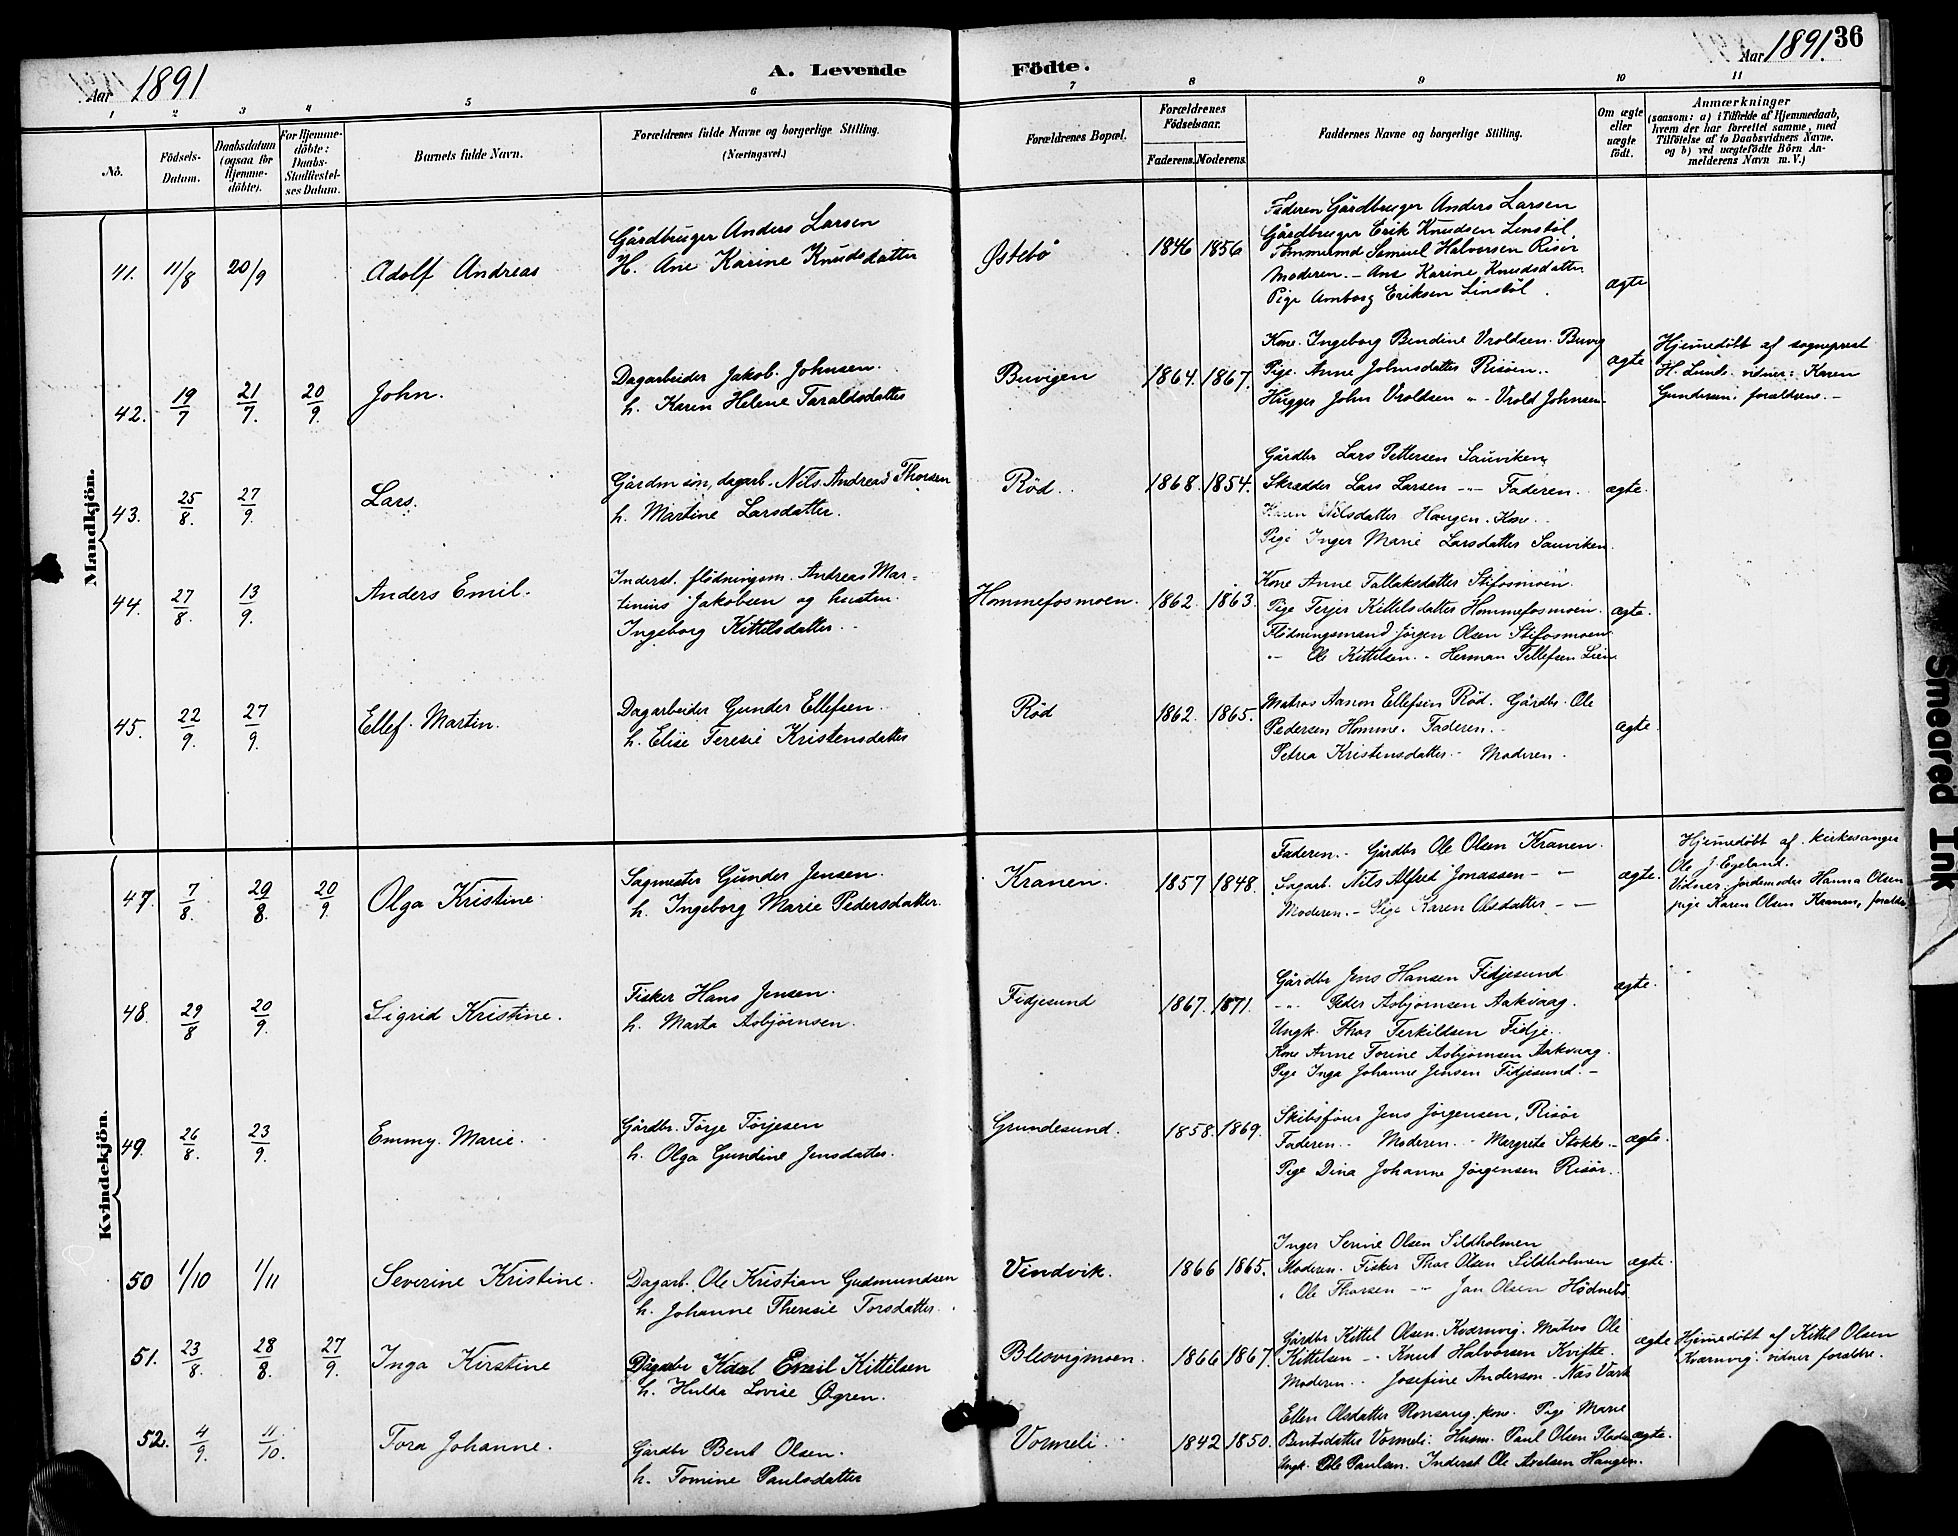 Aar 1891
A. Levende
Födte.
Aar 1891. 36
1 2 3 4 5 6 7 8 9 10 11
No.
Födsels-
Datum.
Daabsdatum
(ogsaa for
Hjemme-
döbte).
For Hjemme-
döbte:
Daabs-
Stadfæstel-
ses Datum.
Barnets fulde Navn.
Forældrenes fulde Navne og borgerlige Stilling.
(Næringsvei.)
Forældrenes Bopæl.
Forældrenes
Födselsaar.
Faderens. Moderens.
Faddernes Navne og borgerlige Stilling.
Om ægte
eller
uægte
födt.
Anmærkninger
(saasom: a) i Tilfælde af Hjemmedaab,
hvem der har forrettet samme, med
Tilföielse af to Daabsvidners Navne.
og b) ved uægtefödte Börn An-
melderens Navn m. V.)
Mandkjön.
41. 11/8 20/9 Adolf Andreas
Gårdbruger Anders Larsen
H. Ane Karine Knudsdatter
Østebö 1846 1856
Faderen Gårdbruger Anders Larsen
Gårdbruger Erik Knudsen Linstöl
Tömmermd. Samuel Halvorsen Risör
Moderen. - Ane Karine Knudsdatter
Pige Amborg Eriksen Linstöl.
ægte
42. 19/7 21/7. 20/9. John.
Dagarbeider Jakob Johnsen.
h. Karen Helene Taraldsdatter
Buvigen 1864. 1867.
Kone. Ingeborg Bendine Vroldsen. Buvig
Pige. Anne Johnsdatter Risöen..
Hugger John Vroldsen " - Vrold Johnsen
ægte
Hjemedöbt af sogneprest
H. Lund. vidner: Karen
Gundersen. forældrene. -
43. 25/8. 27/9. Lars.
Gårdm sön, dagarb. Nils Andreas Thorsen
h. Martine Larsdatter.
Röd. 1868. 1854.
Gårdbr Lars Pettersen Sauviken
Skrædder Lars Larsen - " - Faderen.
Karen Nilsdatter Haugen. Kone.
Pige Inger Marie Larsdatter Sauviken.
ægte.
44. 27/8. 13/9. Anders Emil.
Inderst. flödningsm. Andreas Mar-
tinius Jakobsen og hustru
Ingeborg Kittelsdatter.
Hommefosmoen. 1862. 1863.
Kone Anne Tallaksdatter Stifosmoen.
Pige Terjer Kittelsdatter Hommefosmoen.
Flödningsmand Jörgen Olsen Stifosmoen
- " - Ole Kittelsen. - Herman Tellefsen Lien
ægte.
45. 22/9. 27/9. Ellef. Martin.
Dagarbeider Gunder Ellefsen.
h. Elise Teresie Kristensdatter
Röd 1862. 1865.
Matros Aanon Ellefsen Röd. Gårdbr. Ole
Pedersen Homme. Faderen.
Petrea Kristensdatter - Moderen.
ægte.
Kvindekjön.
47. 7/8. 29/8. 20/9. Olga Kristine.
Sagmester Gunder Jensen.
h. Ingeborg Marie Pedersdatter.
Kranen. 1857 1848.
Faderen.. Gårdbr Ole Olsen Kranen.
Sagarb. Nils Alfred Jonassen - "
Moderen. - Pige Karen Olsdatter - " -
ægte.
Hjemmedöbt af kirkesanger
Ole J. Egeland.
Vidner. jordemoder Hanna Olsen
pige Karen Olsen Kranen, forældre
48. 29/8 20/9. Sigrid Kristine.
Fisker Hans Jensen.
h. Marta Asbjörnsen.
Fidjesund 1867. 1871.
Gårdbr Jens Hansen Fidjesund
- " - Peder Asbjörnsen Aakvaag.
Ungk. Thor Terkildsen Fidje.
Kone Anne Torine Asbjörnsen Aakvaag.
Pige Inga Johanne Jensen Fidjesund. -
ægte.
49. 26/8. 23/9. Emmy. Marie.
Gårdbr. Törje Törjesen
h. Olga Gundine Jensdatter.
Grundesund. 1858. 1869.
Skibsförer Jens Jörgensen, Risör
Faderen. - Moderen. - Margrete Stokke. -
Pige Dina Johanne Jörgensen Risör.
ægte.
50 1/10 1/11 Severine Kristine.
Dagarb. Ole Kristian Gudmundsen
h. Johanne Theresie Torsdatter.
Vindvik. 1866 1865.
Inger Serine Olsen Sildholmen
Moderen. Fisker Thor Olsen Sildholmen
" Ole Thorsen - " Jan Olsen Hödnebö
ægte.
51. 23/8. 28/8. 27/9. Inga Kirstine
Dagarbr Karl Emil Kittilsen
h. Hulda Lovise Øgren.
Blesvigmoen. 1866 1867.
Gårdbr Kittel Olsen. Kværnvig. Matros Ole
Kittelsen - " - Knut Halvorsen Kvifte.
Moderen.. Josefine Anderson. Näs Værk
ægte
Hjemedöbt af Kittel Olsen
Kværnvig. vidner forældre.
52. 4/9. 11/10. Tora Johanne.
Gårdbr Bent Olsen.
h. Tomine Paulsdatter
Vormeli. 1842 1850.
Ellen Olsdatter Ronsang. kone. Pige Marie
Bentsdatter Vormeli. Husm. Paul Olsen
Ungk. Ole Paulsen. Inderst Ole Axelsen Haugen.
ægte.
Smeared Ink